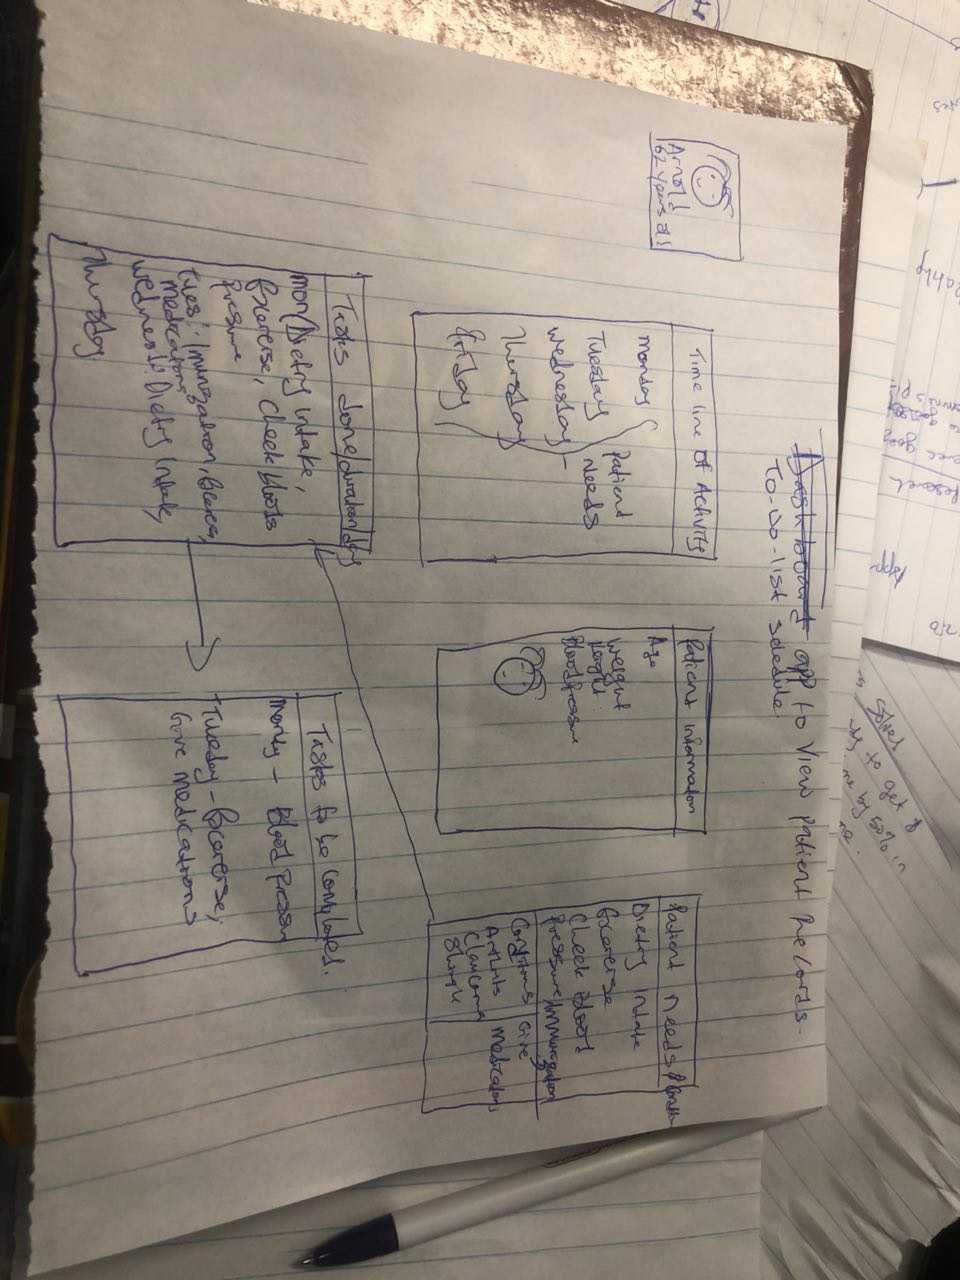 Dashboard app to view patient records.
To-do-list schedule.
Arnold
62 years old
Time line of Activity
monday
Tuesday
wednesday
Thursday
friday
Patient
needs
Patient information
Age
weight
height
Blood Pressure
Patient needs &
Dietry intake
Excerese
Check Blood
Pressure/Immunization
Conditions
Arthritis
Glaucoma
Give
medications
Tasks done/duration/day
mon/Dietry intake,
Excerese, Check bloods
Pressure
Tues: Immunization,
medications
Dietry intake,
Thursday
Tasks to be completed.
Blood Pressure
Tuesday - Excerese,
Give medications
Research
App
Solves
to get
by 50% in